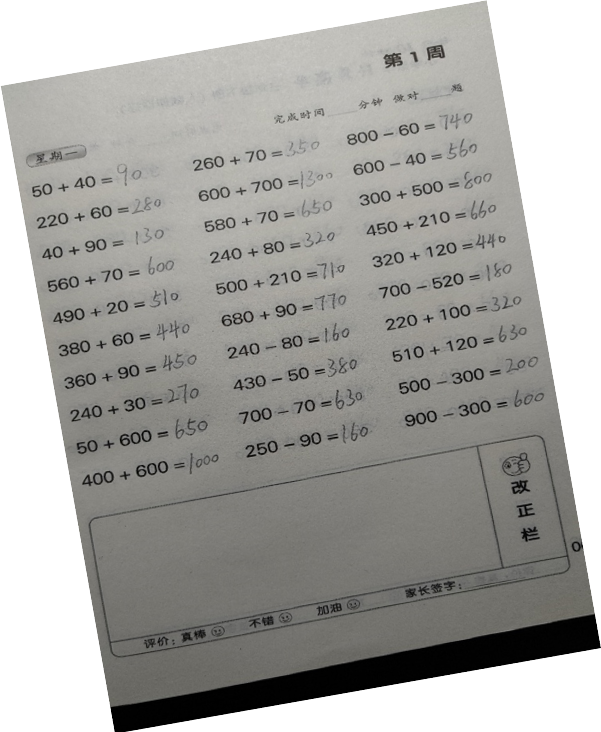 第 1 周
完成时间 分钟 做对 题
星期一
50 + 40 = 90
220 + 60 = 280
40 + 90 = 130
560 + 70 = 600
490 + 20 = 510
380 + 60 = 440
360 + 90 = 450
240 + 30 = 270
50 + 600 = 650
400 + 600 = 1000
260 + 70 = 350
600 + 700 = 1300
580 + 70 = 650
240 + 80 = 320
500 + 210 = 710
680 + 90 = 770
240 − 80 = 160
430 − 50 = 380
700 − 70 = 630
250 − 90 = 160
800 − 60 = 740
600 − 40 = 560
300 + 500 = 800
450 + 210 = 660
320 + 120 = 440
700 − 520 = 180
220 + 100 = 320
510 + 120 = 630
500 − 300 = 200
900 − 300 = 600
改正栏
评价：真棒 不错 加油 家长签字：